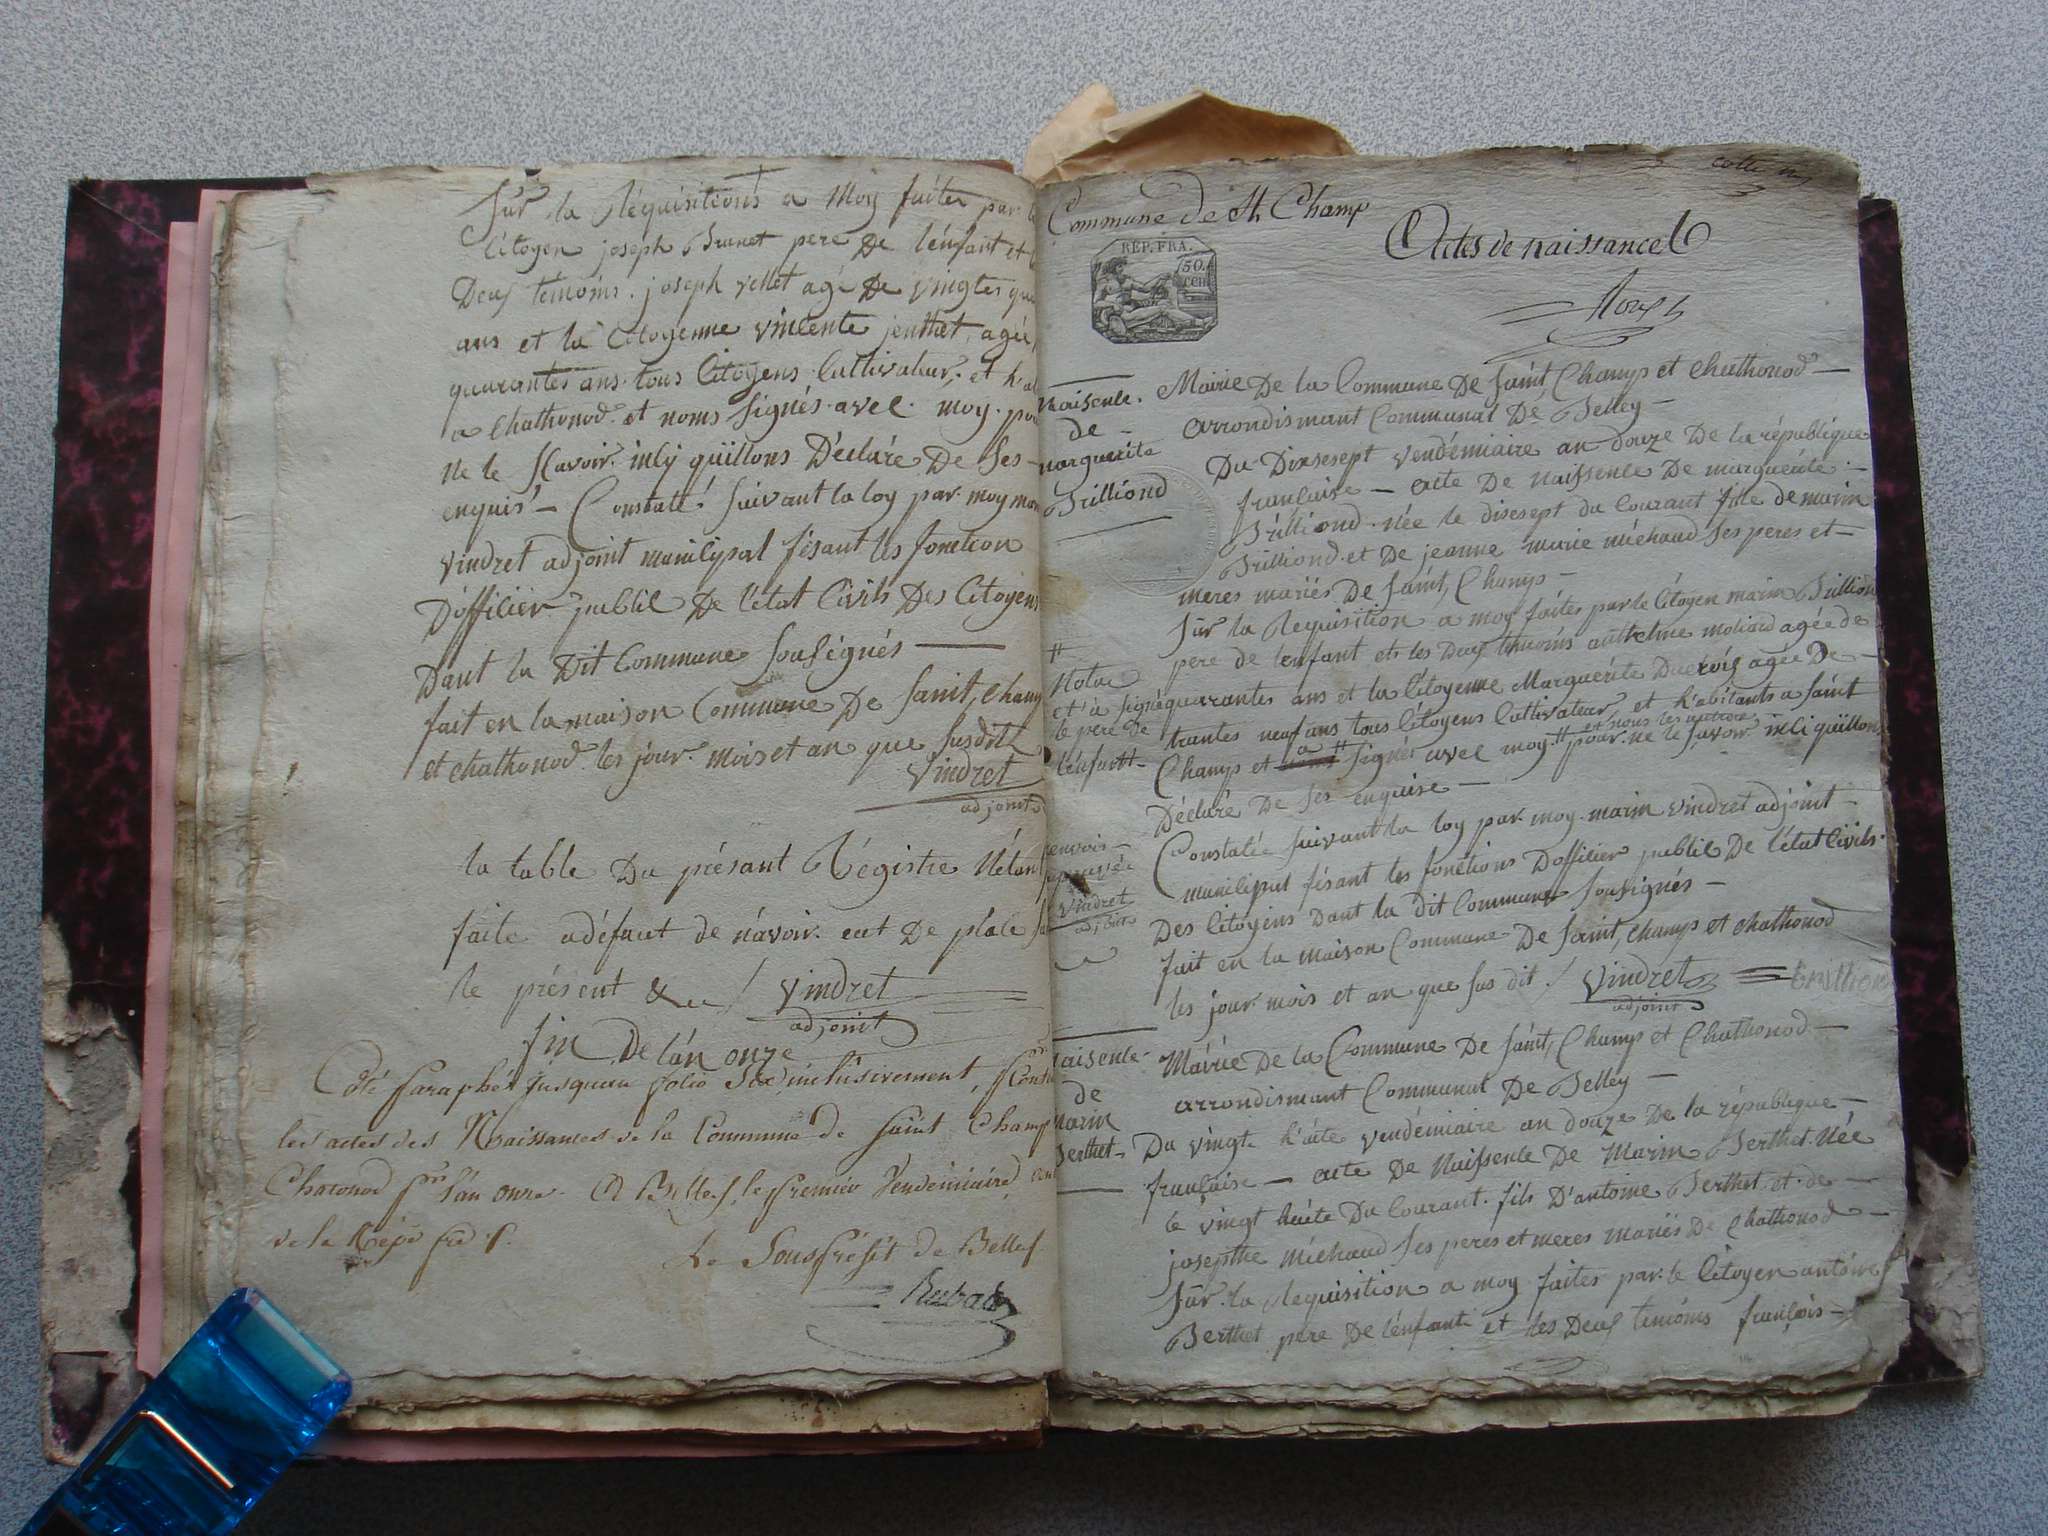 Sur la Réquisitions a Moy faites par le
Citoyen joseph Brunet pere De lénfant et
Deus temoins. joseph vellet agé De vingtes
ans et la Citoyenne vincente jenthet, agée
quarantes ans. tous Citoyens Cultivateur, et
a Chathonod et noms signés avec moy. pour
ne le Scavoir. incy quillons Déclare De Ses
enquis — Constaté suivant la loy par. moy
vindret adjoint municipal fésant les fonction
D'officier public De l'état Civils Des Citoyens
Dant la Dit Commune Sousignés —
fait en la maison Commune De Saint, Champ
et chathonod les jour. mois et an que susdit
Vindret
adjoint
la table Du présant Régistre N'étant
faite adéfaut de n'avoir. eut De place
le présent & / Vindret
adjoint
fin De l'án onze
Coté Paraphé jusquau folio Six inclusivement,
les actes des Naissances de la Commune de Saint Champ
Chatonod pr l'an onze. A Belley, le premier Vendemiaire,
de la Rép
Le Souspréfét de Belley
Rubat
Commune de St Champ
Actes de naissances
RÉP. FRA.
50.
CEN
Naisence.
de
marguerite
Trilliond
Mairie De la Commune De Saint, Champs et chathonod —
arrondismant Communal De Belley —
Du Dixsesept vendémiaire an douze De la république
française — acte De Naissence De marguerite
Trilliond. née le disesept du Courant fille de marin
Trilliond. et De jeanne marie michaud Ses peres et —
meres mariés De Saint, Champs —
Sur la Requisition a moy faites par le Citoyen marin Trilliond
pere de lenfant et les Deus temoins anthelme moliard agée de
quarantes ans et la Citoyenne Marguerite Ducrois agee De —
trantes neuf ans tous Citoyens Cultivateur, et h'abitants a saint
Champs et a signés avec moy # pour. ne le savoir inci quillons
et nous les autres
Déclaré De Ses enquise —
Notae
et à signé
le pere De
l'énfant
Constatée suivant la loy par. moy. marin vindret adjoint —
municipal fésant les fonctions D'officier public De l'état Civils.
Des Citoyens Dant la dit Commune Sousignés —
fait en la maison Commune De Saint, champs et chathonod
les jour mois et an que sus dit / Vindret
adjoint
renvois
Vindret
adjoint
Naisence.
de
Marin
Berthet
Mairie De la Commune De Saint, Champs et Chathonod —
arrondismant Communal De Belley —
Du vingt h'uite vendémiaire an douze De la république —
française — acte De Naissence De Marin Berthet. Née
le vingt huite Du Courant. fils D'antoine Berthet et. de —
josepthe Michaud Ses peres et meres mariés De Chathonod —
Sur la Requisition a moy faites par. le Citoyen antoine
Berthet pere De lénfant et les Deus temoins françois —